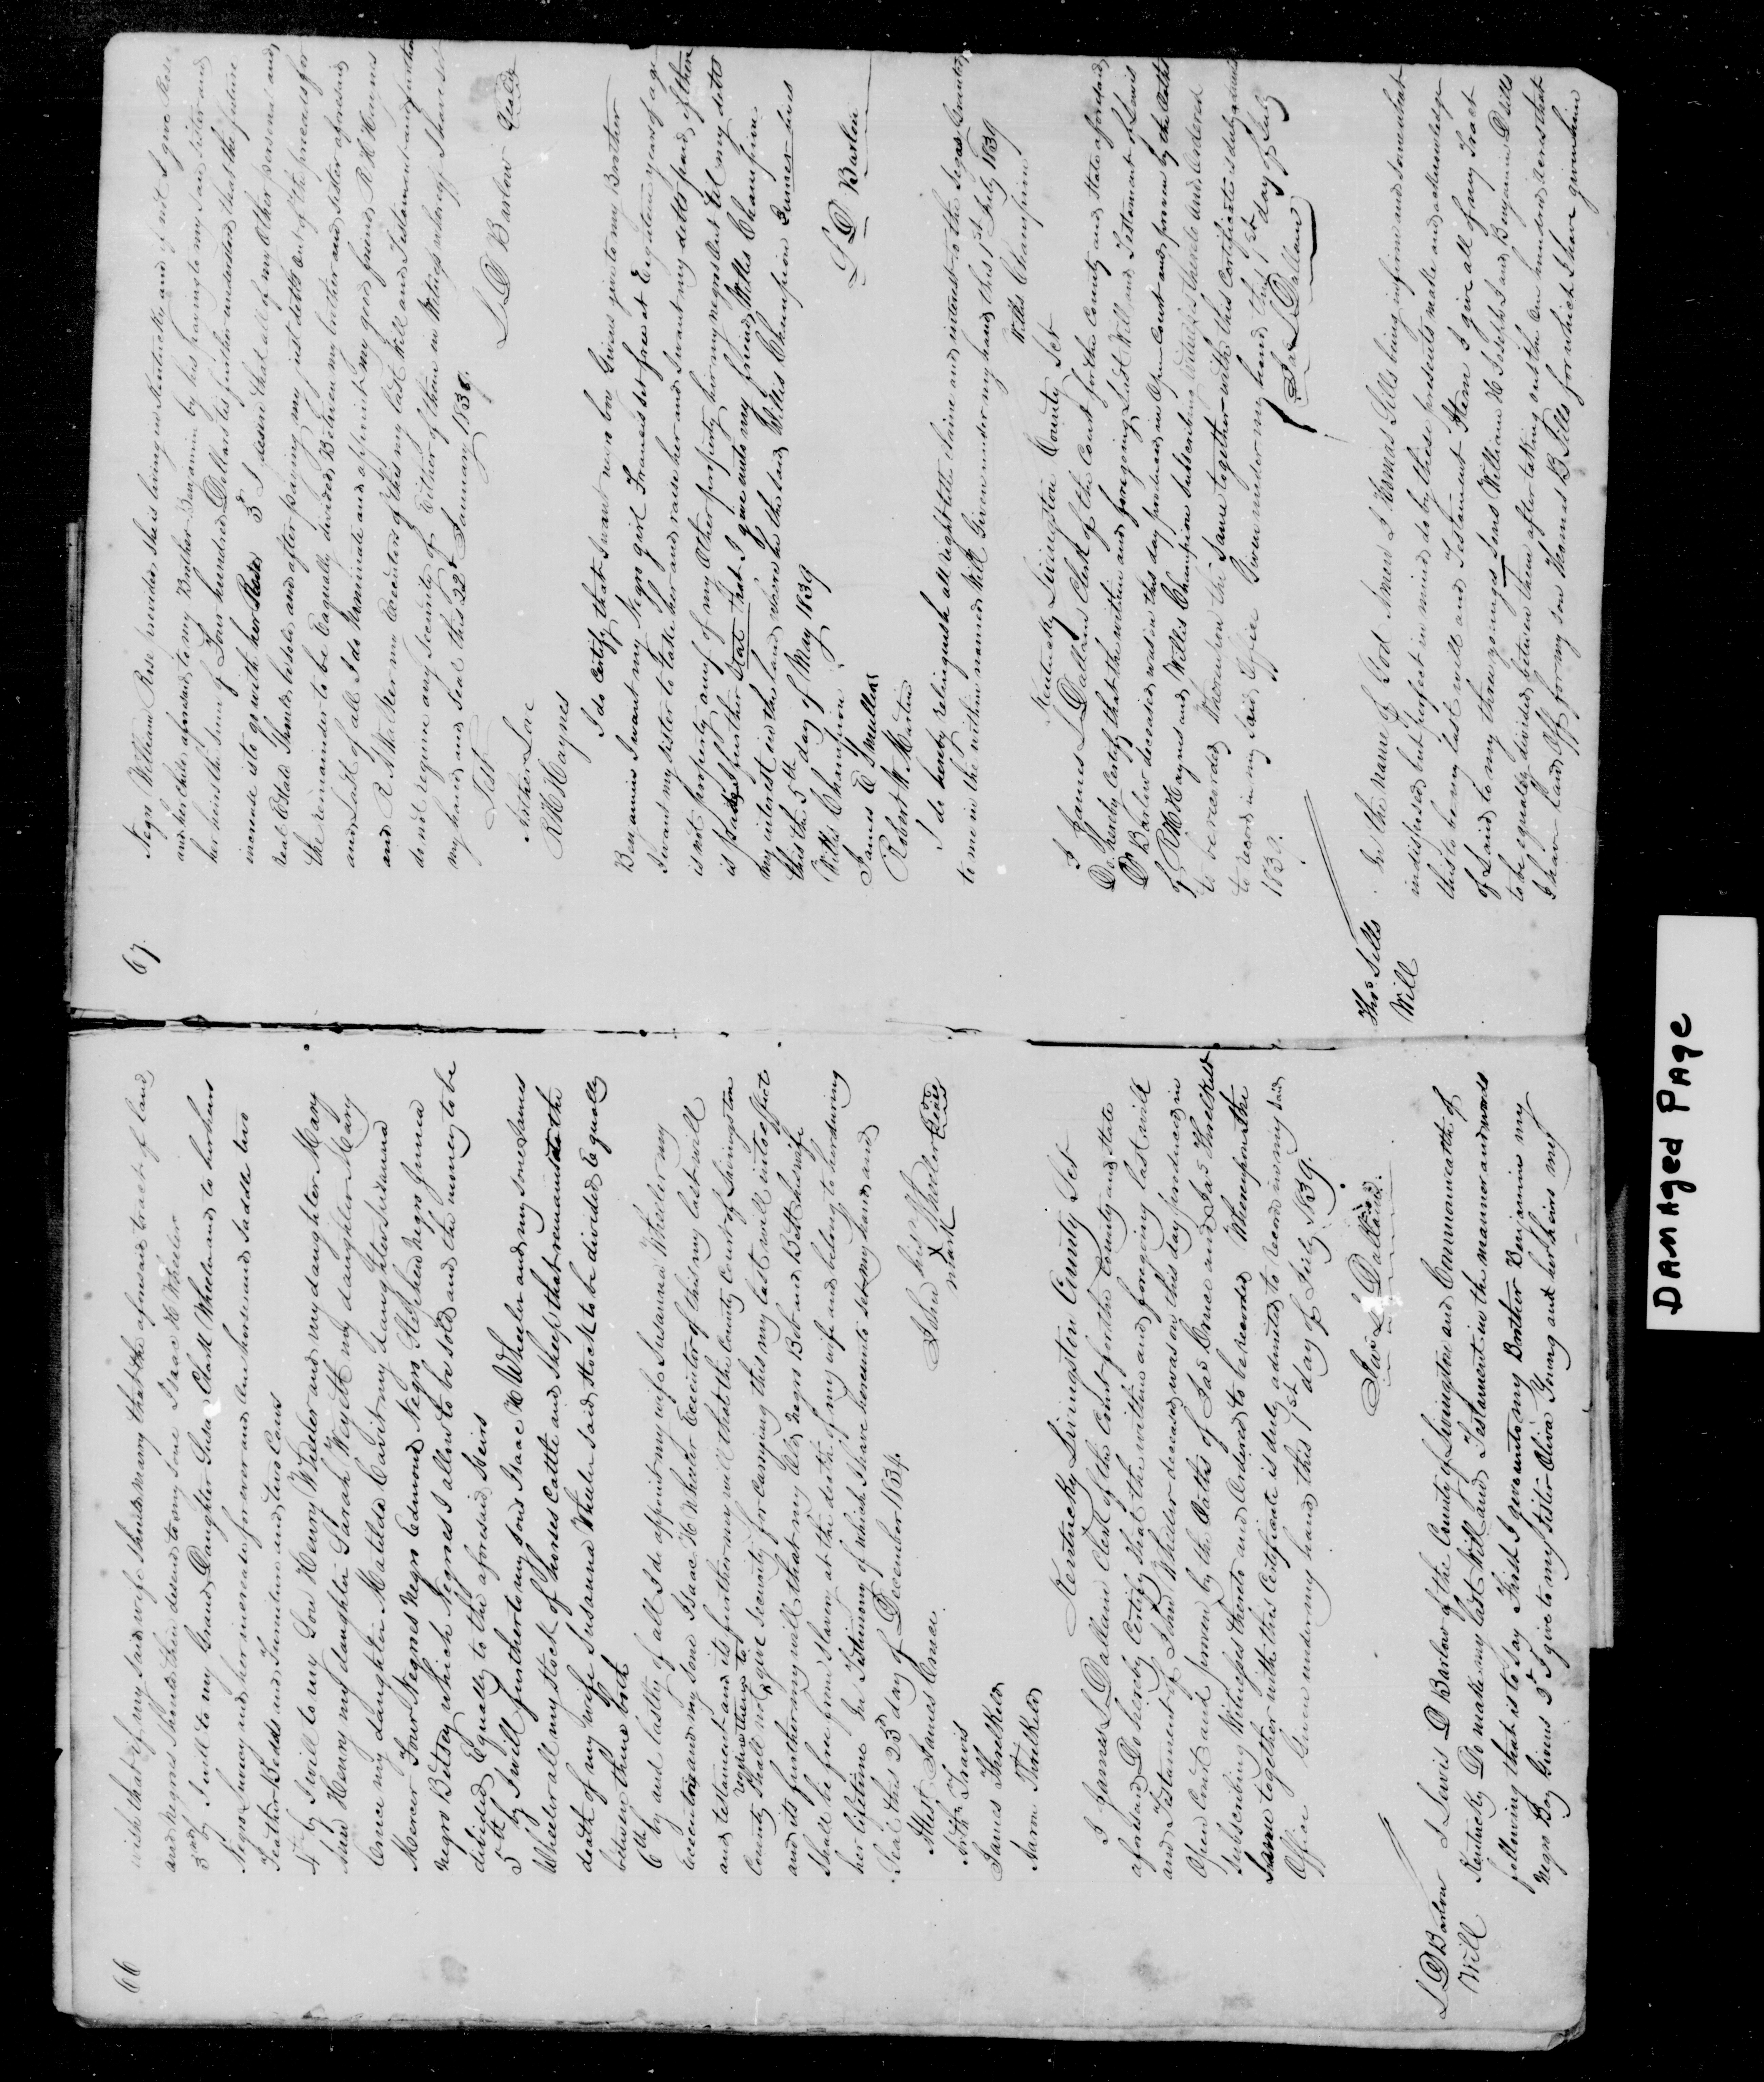 66
wish that if my said wife should marry that the aforesaid tract of land
and negroes should then desend to my sone Isaac H Wheeler
3rdly I will to my Grand Daughter Susan Clark Wheeler and to her heirs
Negro Lucy and her increase for ever and one horse and saddle two
Feather Beds and Furniture and two Cows
4th by I will to my Son Henry Wheeler and my daughter Mary
Ann Henry my daughter Sarah Wyeth my daughter Mary
Crnce my daughter Matilda Cavit my daughter Susanna
Mercer Four Negroes Negro Edmond Negro Stephen Negro Jinna
Negro Betsey which Negroes I allow to be sold and the money to be
divided Equally to the aforesaid Heirs
5th by I will further to my sons Isaac H Wheeler and my sone James
Wheeler all my stock of horses Cattle and Sheep that remains at the
death of my wife Susanna Wheeler said stock to be divided Equally
between them both
6th by and lastly of all I do appoint my wife Susanna Wheeler my
Executrix and my sone Isaac H Wheeler Executor of this my last will
and testament and its further my will that the County Court of Livingston
County shall not require them to give security for carrying this my last will into effect
and its further my will that my Old negros Bob and Bett his wife
shall be free from slavery at the death of my wife and belong to her during
her lifetime In Testimony of which I have hereunto set my hand and
Seal this 23d day of December 1834
Attest James Crnce
Arth Travis
James Threlkeld
Aaron Threlkeld
John his X mark Wheeler Seal
Kentucky Livingston County Sct
I James L Dallam Clerk of the Court for the County and State
aforesaid Do hereby Certify that the within and forgoing last will
and Testament of John Wheeler deceased was on this day produced in
Open Court and proven by the Oaths of Jas Crnce and Jas Threlkeld
subscribing Witnesses thereto and Ordered to be recorded Whereupon the
Same together with this Certificate is duly admited to record in my said
Office Given under my hand this 1st day of July 1839.
Jas L Dallam
L D Barlow
Will
I Lewis D Barlow of the County of Livingston and Commonwealth of
Kentucky Do make my last Will and Testament in the manner and words
following that is to say First I give unto my Brother Benjamin my
Negro Boy Givens 2d I give to my sister Oliva Young and her heirs my
67.
Negro William Rose provided she is living in Kentucky and if not I give Rose
and her child aforesaid to my Brother Benjamin by his paying to my said sister and
her heirs the sum of Four hundred Dollars tis further understood that the future
increase is to go with her Rose 3d I desire that all of my other personal and
real Estate should be sold and after paying my just debts out of the proceeds for
the remainder to be Eaqually divided Between my brother and sister aforesaid
and Last of all I do Nominate and appoint my good friends R H Haynes
and R A Walker my Executors of this my last Will and Testament and further
do not require any security of Either of them in Witness whereof I have set
my hand and Seal this 22d January 1838.
Test
Arther Love
R H Haynes
L D Barlow Seal
I do Certify that I want negro boy Givens give to my Brother
Benjamin I want my Negro girl Frances set free at Eighteen years of age
I want my sister to take her and raise her and I want my detts paid, if there
is not property anuf of my Other property hier my negros Out tel my detts
is paid I further that I give unto my friend Willis Champion
my interest in the land where he the said Willis Champion Junes lives
this the 5th day of May 1839
Willis Champion
James D Mullins
Robert W Martin
L D Barlow
I do hereby relinquish all right title claim and interest to the legas bequeathed
to me in the within named Will Given under my hand this 1st July 1839
Willis Champion
Kentucky Livingston County Sct
I James L Dallam Clerk of the Court for the County and State aforesaid
Do hereby Certify that the within and foregoing Last Will and Testament of Lewis
D Barlow deceased was on this day produced in Open Court and proven by the Oaths
of R H Haynes and Willis Champion subscribing witnesses thereto and Ordered
to be recorded Whereupon the Same together with this Certificate is duly admited
to record in my said Office Given under my hand this 1st day of July
1839.
Jas L Dallam
Thos. Sills
Will
In the name of God Amen I Thomas Sills being infirm and somewhat
indisposed but perfect in mind do by these presents make and acknowledge
this to be my last will and Testament Item I give all of my Tract
of Land to my three youngest Sons William H Joseph L and Benjamin D Sills
to be equally divided between them after taking out the One hundred acres that
I have laid off for my son Thomas B Sills for which I have given him
DAMAGED PAGE